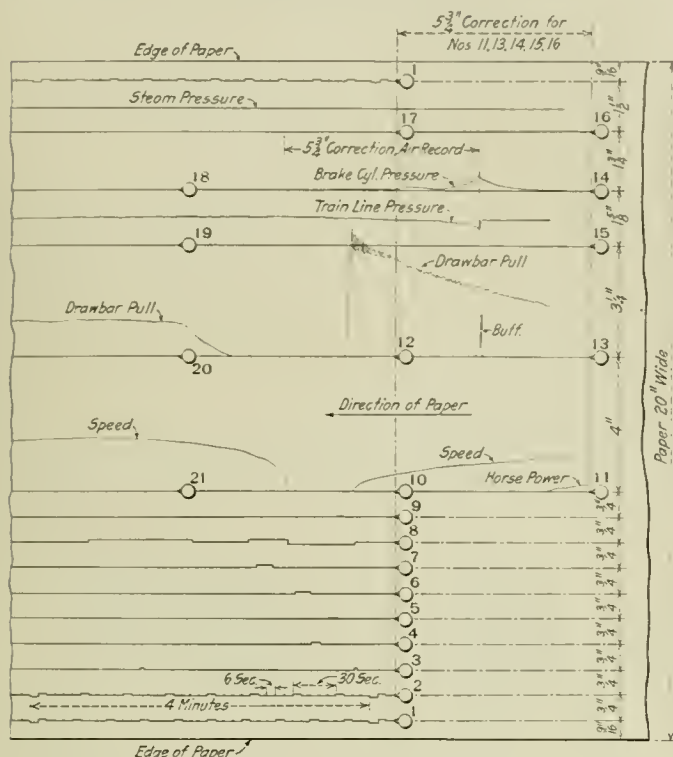 5 3/4" Correction for
Nos 11, 13, 14, 15, 16
Edge of Paper
1
9/16"
Steam Pressure
1 1/2"
17
16
5 3/4" Correction, Air Record
1 3/4"
18
Brake Cyl. Pressure
14
Train Line Pressure
1 5/8"
19
15
Drawbar Pull
3 1/4"
Drawbar Pull
Buff.
20
12
13
Direction of Paper
4"
Paper 20" Wide
Speed
Speed
Horse Power
21
10
11
9
3/4"
8
3/4"
7
3/4"
6
3/4"
5
3/4"
4
3/4"
3
3/4"
6 Sec.
30 Sec.
2
3/4"
4 Minutes
3/4"
1
9/16"
Edge of Paper